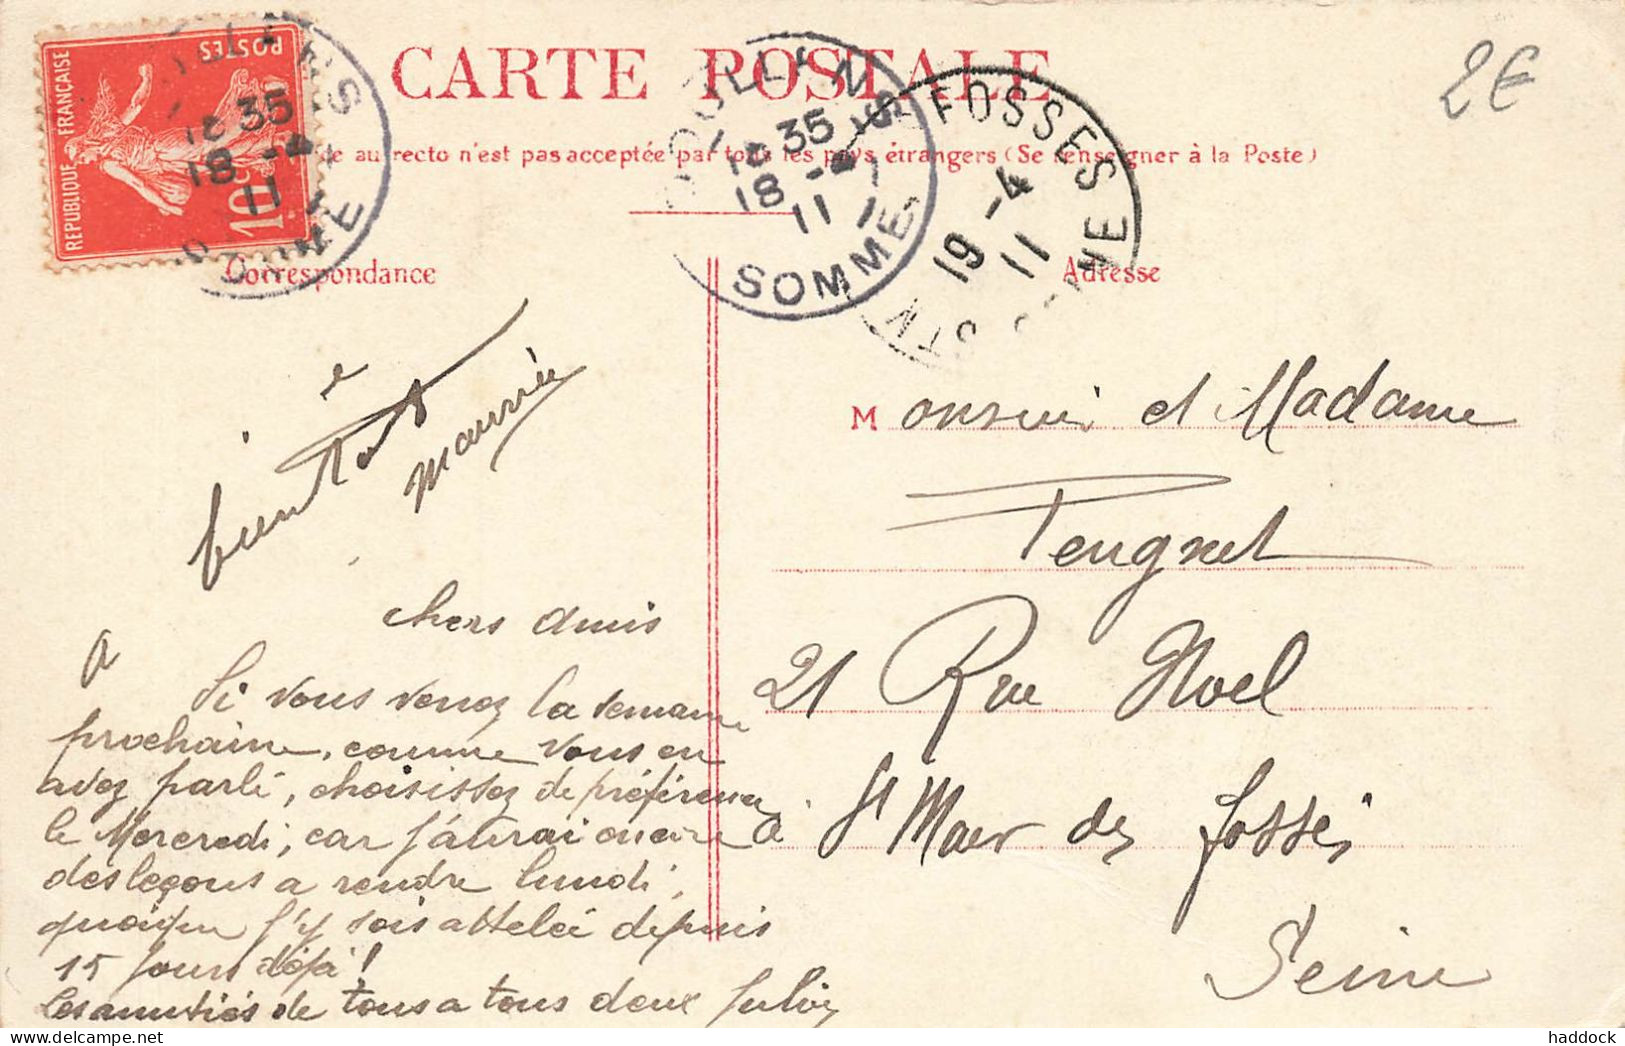 REPUBLIQUE FRANÇAISE
POSTES
10c
CARTE POSTALE
DOULLENS
12 35
18 -4
11
SOMME
DOULLENS
12 35
18 -4
11
SOMME
ST MAUR DES FOSSES
19 -4
11
SEINE
2€
au recto n'est pas acceptée par tous les pays étrangers (Se renseigner à la Poste)
Correspondance
Adresse
bientôt
Chers amis
A
Si vous venez la semaine
prochaine, comme vous en
avez parlé, choisissez de préférence
le Mercredi, car j'aurai encore
des leçons a rendre lundi,
quoique j'y sois attelée depuis
15 jours déjà!
Les amitiés de tous a tous deux
Monsieur et Madame
Peugnet
21 Rue Noel
à St Maur des fossés
Seine
haddock